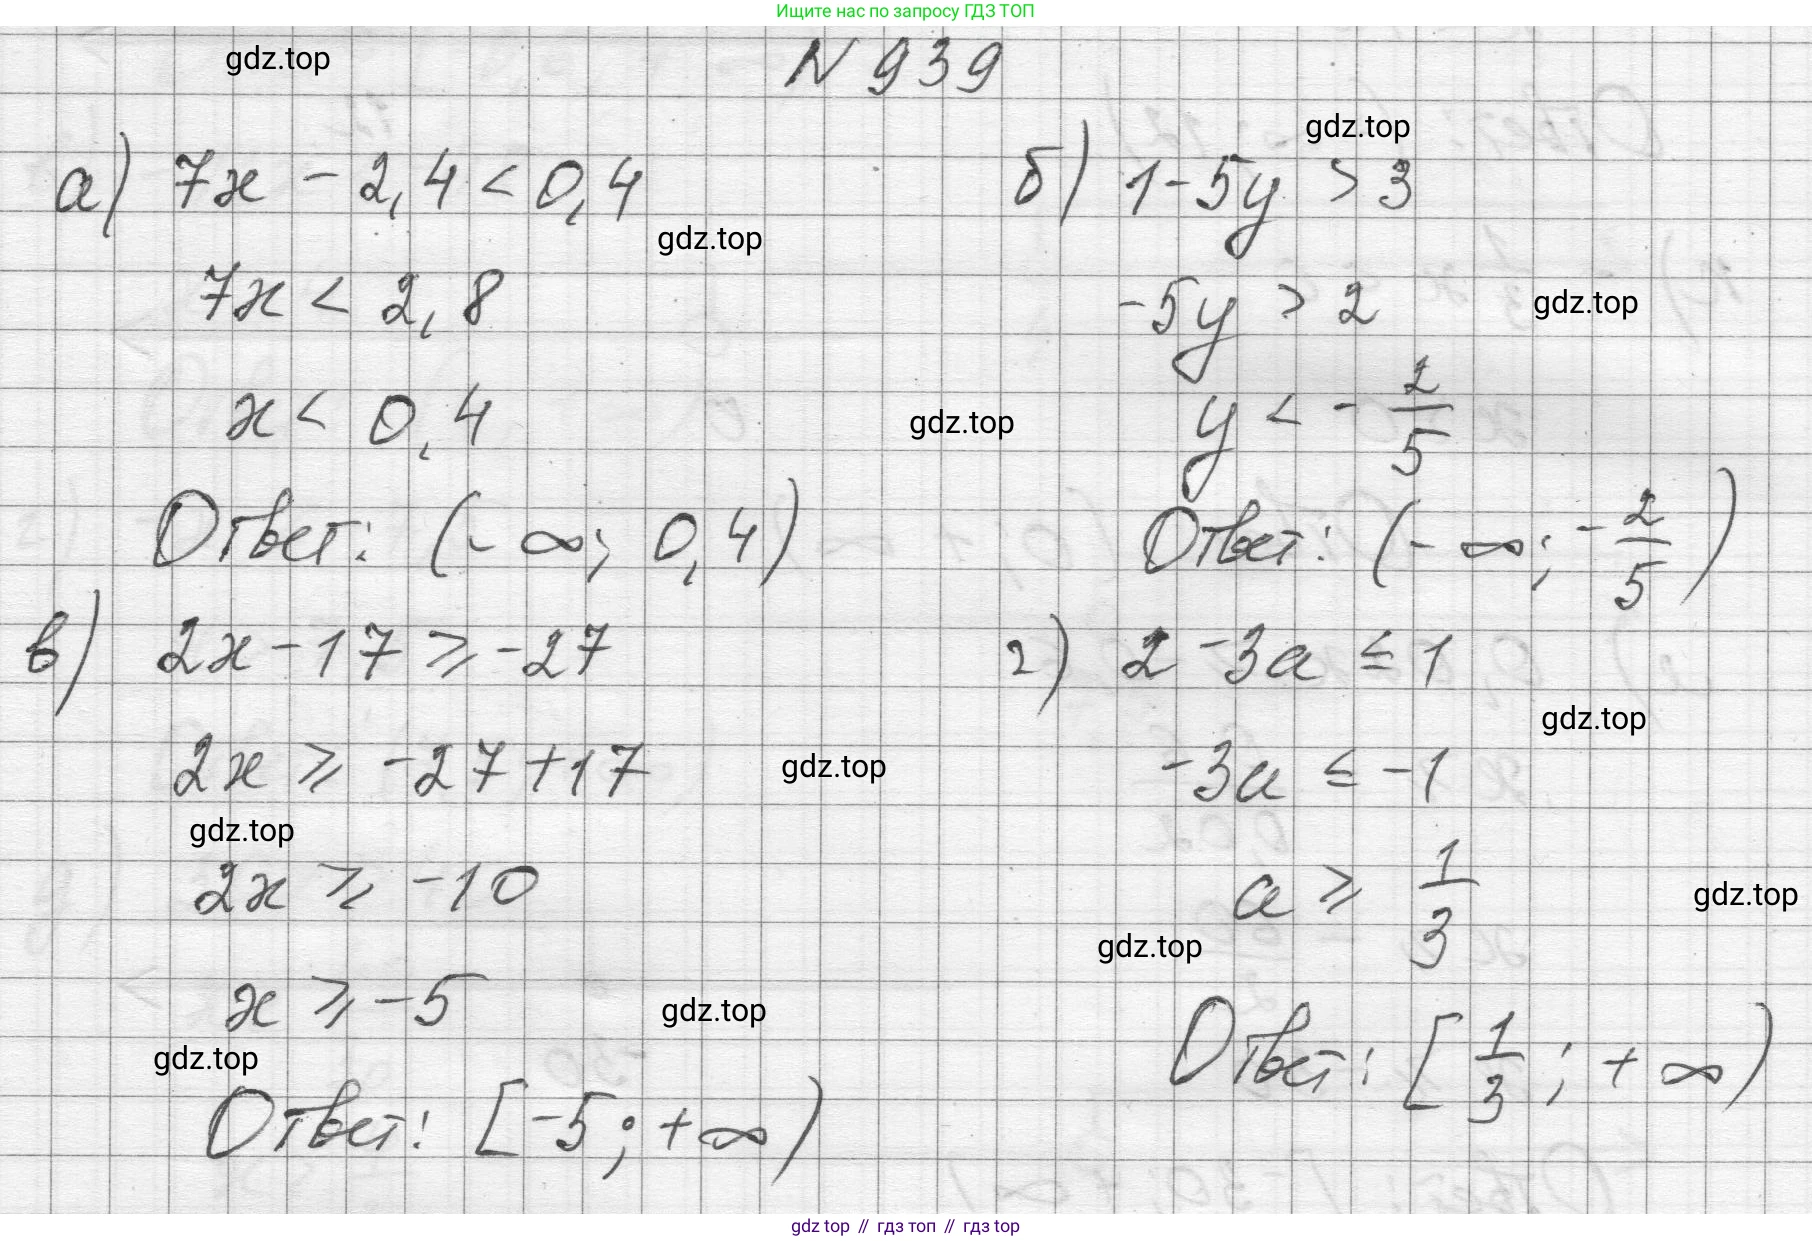 Ищите нас по запросу ГДЗ ТОП
gdz.top
N 939
gdz.top
а) 7x - 2,4 < 0,4
gdz.top
7x < 2,8
x < 0,4
gdz.top
Ответ: (-∞; 0,4)
б) 1-5y > 3
-5y > 2
gdz.top
y < -2/5
Ответ: (-∞; -2/5)
в) 2x-17 ⩾ -27
2x ⩾ -27+17
gdz.top
gdz.top
2x ⩾ -10
x ⩾ -5
gdz.top
gdz.top
Ответ: [-5; +∞)
г) 2-3a ≤ 1
gdz.top
-3a ≤ -1
a ⩾ 1/3
gdz.top
gdz.top
Ответ: [1/3; +∞)
gdz top // гдз топ // гдз top